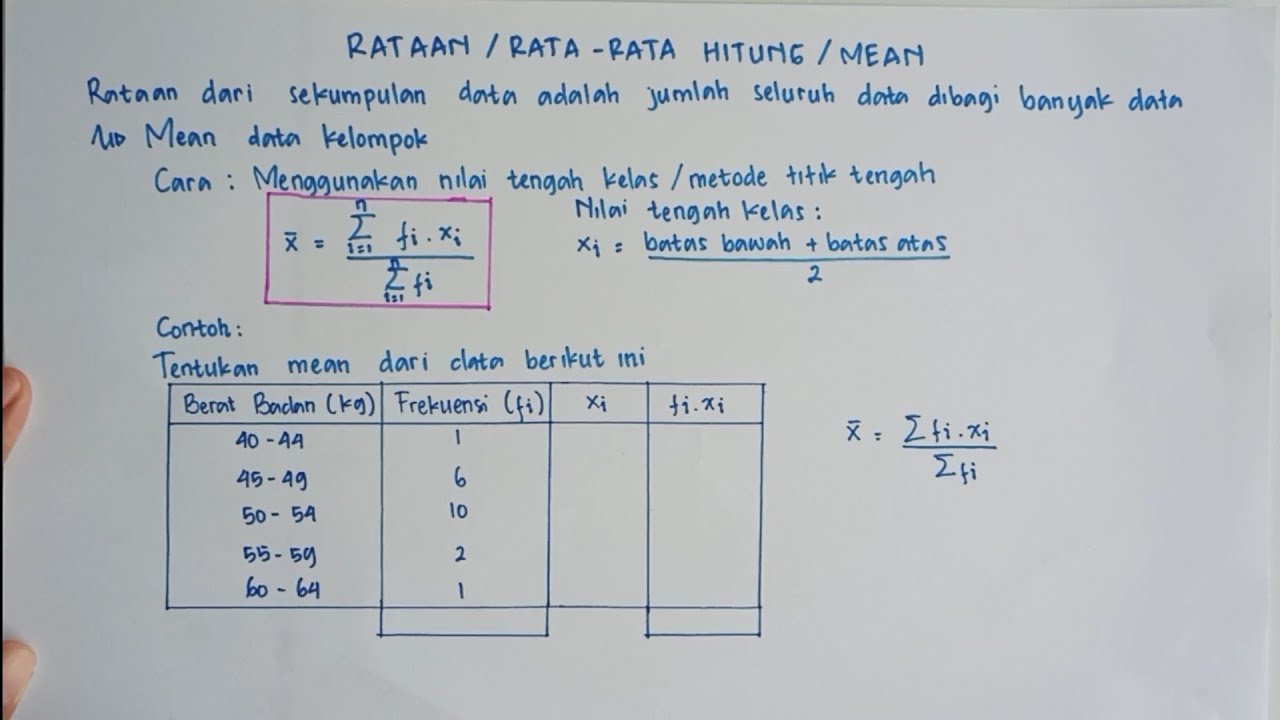 RATAAN / RATA-RATA HITUNG / MEAN
Rataan dari sekumpulan data adalah jumlah seluruh data dibagi banyak data
Mean data kelompok
Cara : Menggunakan nilai tengah kelas / metode titik tengah
x̄ = ∑ᵢ₌₁ⁿ fi . xi / ∑ᵢ₌₁ⁿ fi
Nilai tengah kelas :
xi = batas bawah + batas atas / 2
Contoh :
Tentukan mean dari data berikut ini
Berat Badan (kg) Frekuensi (fi) xi fi . xi
40 - 44 1
45 - 49 6
50 - 54 10
55 - 59 2
60 - 64 1
x̄ = ∑ fi . xi / ∑ fi